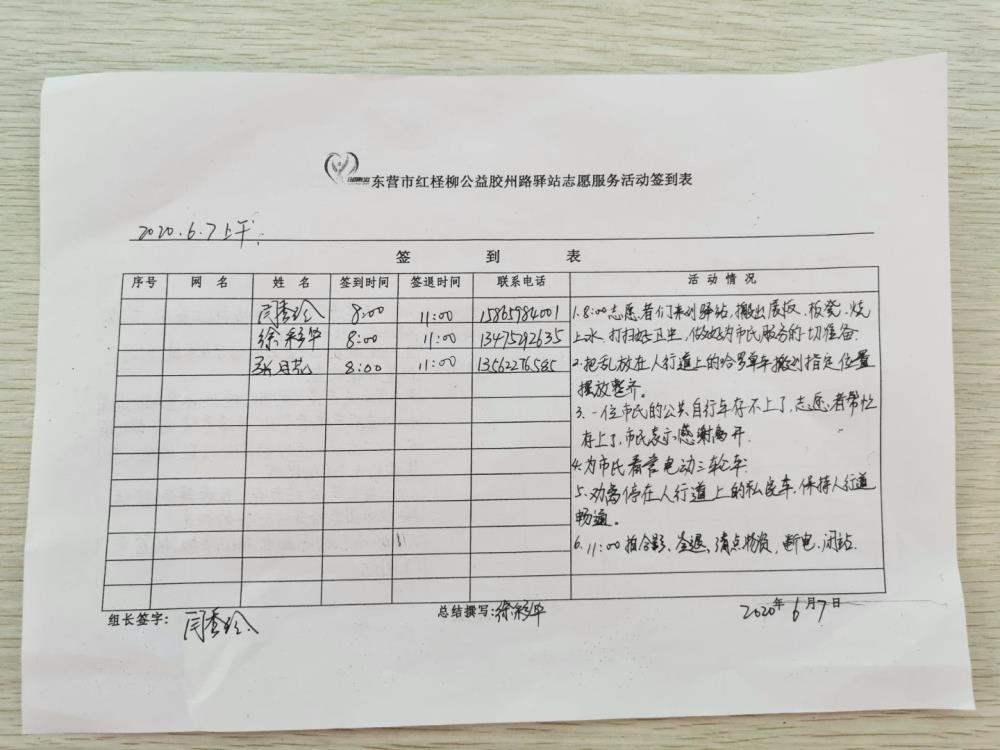 东营市红柽柳公益胶州路驿站志愿服务活动签到表
2020.6.7上午
签 到 表
序号 网 名 姓 名 签到时间 签退时间 联系电话 活动情况
闫秀玲 8:00 11:00 15865984001
徐彩华 8:00 11:00 13475292635
张月花 8:00 11:00 13562276585
1.8:00志愿者们来到驿站,搬出展板、板凳、烧
上水,打扫好卫生,做好为市民服务的一切准备.
2.把乱放在人行道上的哈罗单车搬到指定位置
摆放整齐。
3.一位市民的公共自行车存不上了,志愿者帮忙
存上了,市民表示感谢离开.
4.为市民看管电动三轮车.
5.劝离停在人行道上的私家车,保持人行道
畅通。
6.11:00拍合影、签退、清点物资,断电、闭站.
组长签字: 闫秀玲 总结撰写:徐彩华 2020年6月7日